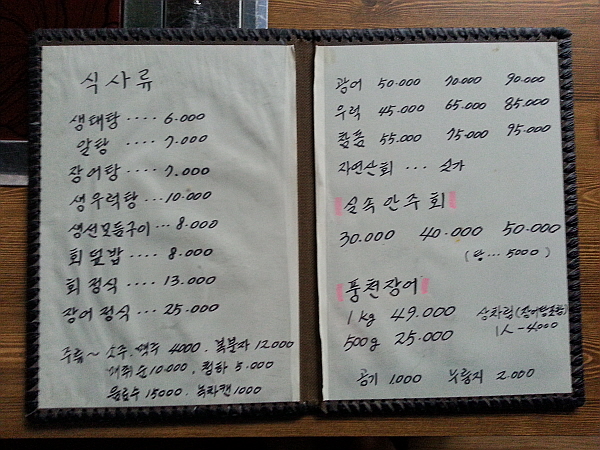 식사류
생태탕 .... 6.000
알탕 .... 7.000
장어탕 .... 7.000
생우럭탕 ... 10.000
생선모듬구이 ... 8.000
회덮밥 .... 8.000
회정식 .... 13.000
장어정식 .... 25.000
주류 ~ 소주. 맥주 4000. 복분자 12.000
매취순 10.000, 청하 5.000
음료수 15000. 녹차캔 1000
광어 50.000 70.000 90.000
우럭 45.000 65.000 85.000
참돔 55.000 75.000 95.000
자연산회 ... 싯가
실속안주회
30.000 40.000 50.000
(탕 ... 5000)
풍천장어
1kg 49.000 상차림(장어탕포함)
500g 25.000 1人 - 4000
공기 1000 누룽지 2.000